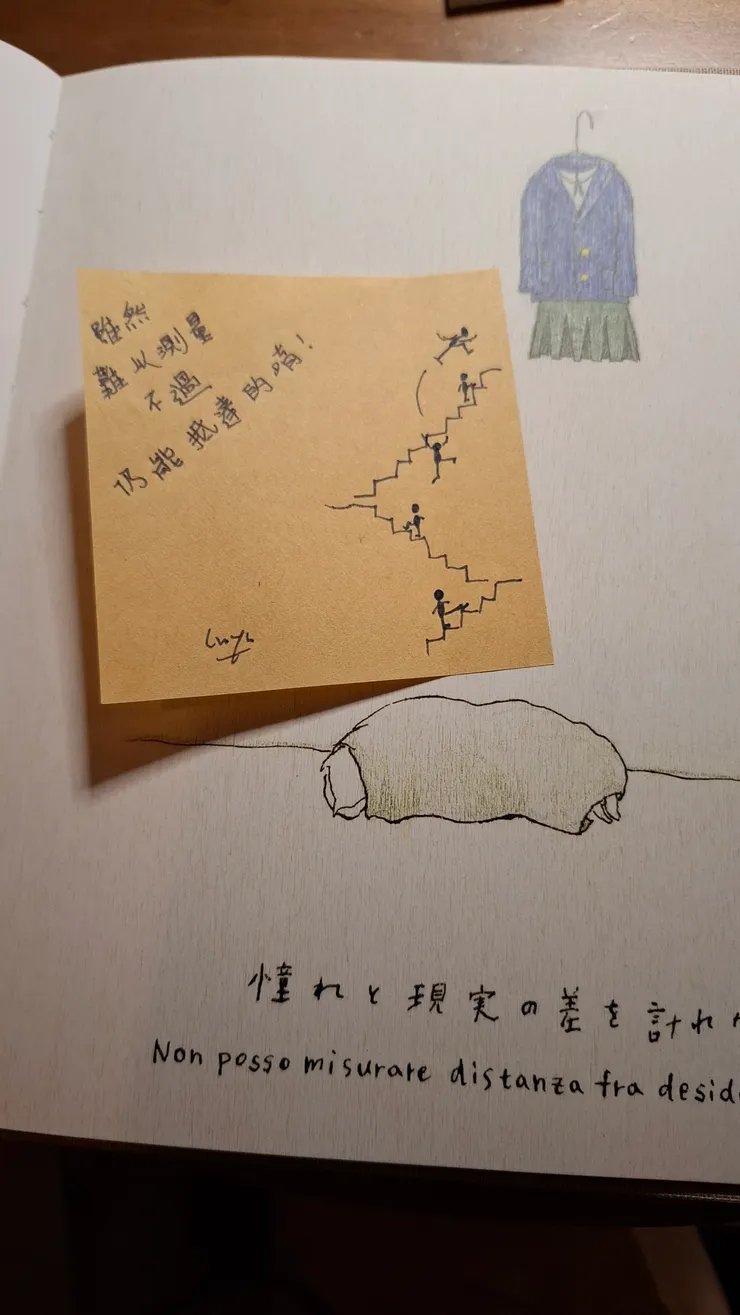 雖然
難以測量
不過
仍能抵達的唷!
憧れと現実の差を計れ
Non posso misurare distanza fra desid